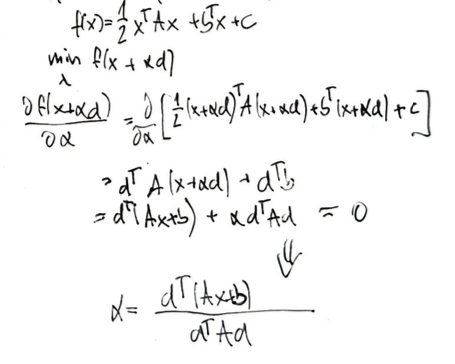 f(x)=½ xᵀAx + bᵀx + c
min f(x + αd)
λ
∂f(x+αd)/∂α = ∂/∂α [½(x+αd)ᵀA(x+αd)+bᵀ(x+αd)+c]
= dᵀA(x+αd) + dᵀb
= dᵀ(Ax+b) + αdᵀAd = 0
⇓
α = dᵀ(Ax+b)/dᵀAd